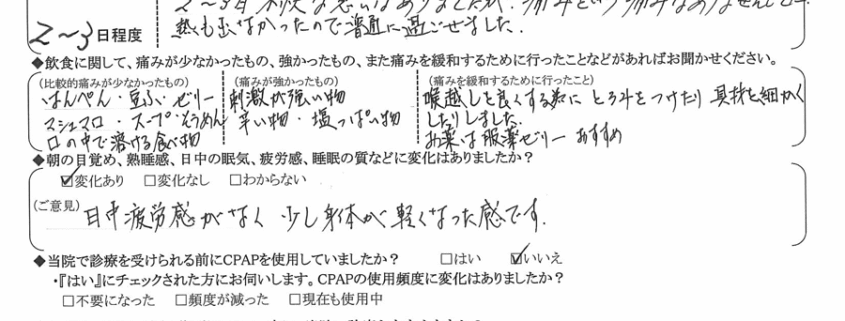 2〜3日不快な思いはありましたが、痛みという痛みはありませんでした
熱も出なかったので普通に過ごせました.
2〜3日程度
◆飲食に関して、痛みが少なかったもの、強かったもの、また痛みを緩和するために行ったことなどがあればお聞かせください。
(比較的痛みが少なかったもの) (痛みが強かったもの) (痛みを緩和するために行ったこと)
はんぺん・豆ふ・ゼリー 刺激が強い物 喉越しを良くする為に とろみをつけたり 具材を細かく
マシュマロ・スープ・そうめん 辛い物・塩っぱい物 したりしました.
口の中で溶ける食べ物 お薬は服薬ゼリー おすすめ
◆朝の目覚め、熟睡感、日中の眠気、疲労感、睡眠の質などに変化はありましたか?
☑変化あり □変化なし □わからない
(ご意見) 日中疲労感がなく 少し身体が軽くなった感です.
◆当院で診療を受けられる前にCPAPを使用していましたか? □はい ☑いいえ
・『はい』にチェックされた方にお伺いします。CPAPの使用頻度に変化はありましたか?
□不要になった □頻度が減った □現在も使用中